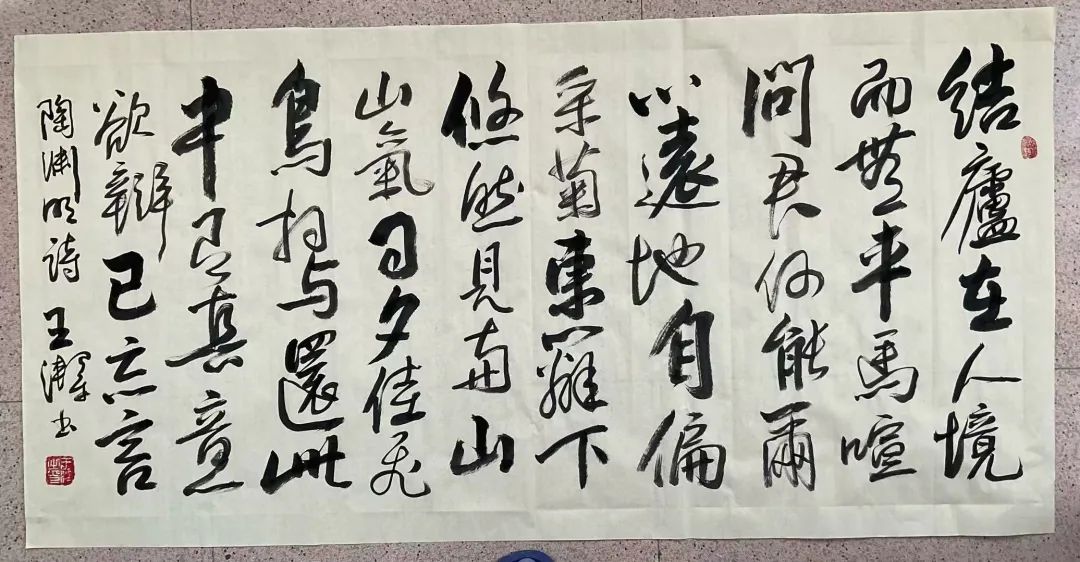 結廬在人境
而無車馬喧
問君何能爾
心遠地自偏
采菊東籬下
悠然見南山
山氣日夕佳飛
鳥相与還此
中有真意
欲辨已忘言
陶渊明詩 王 書